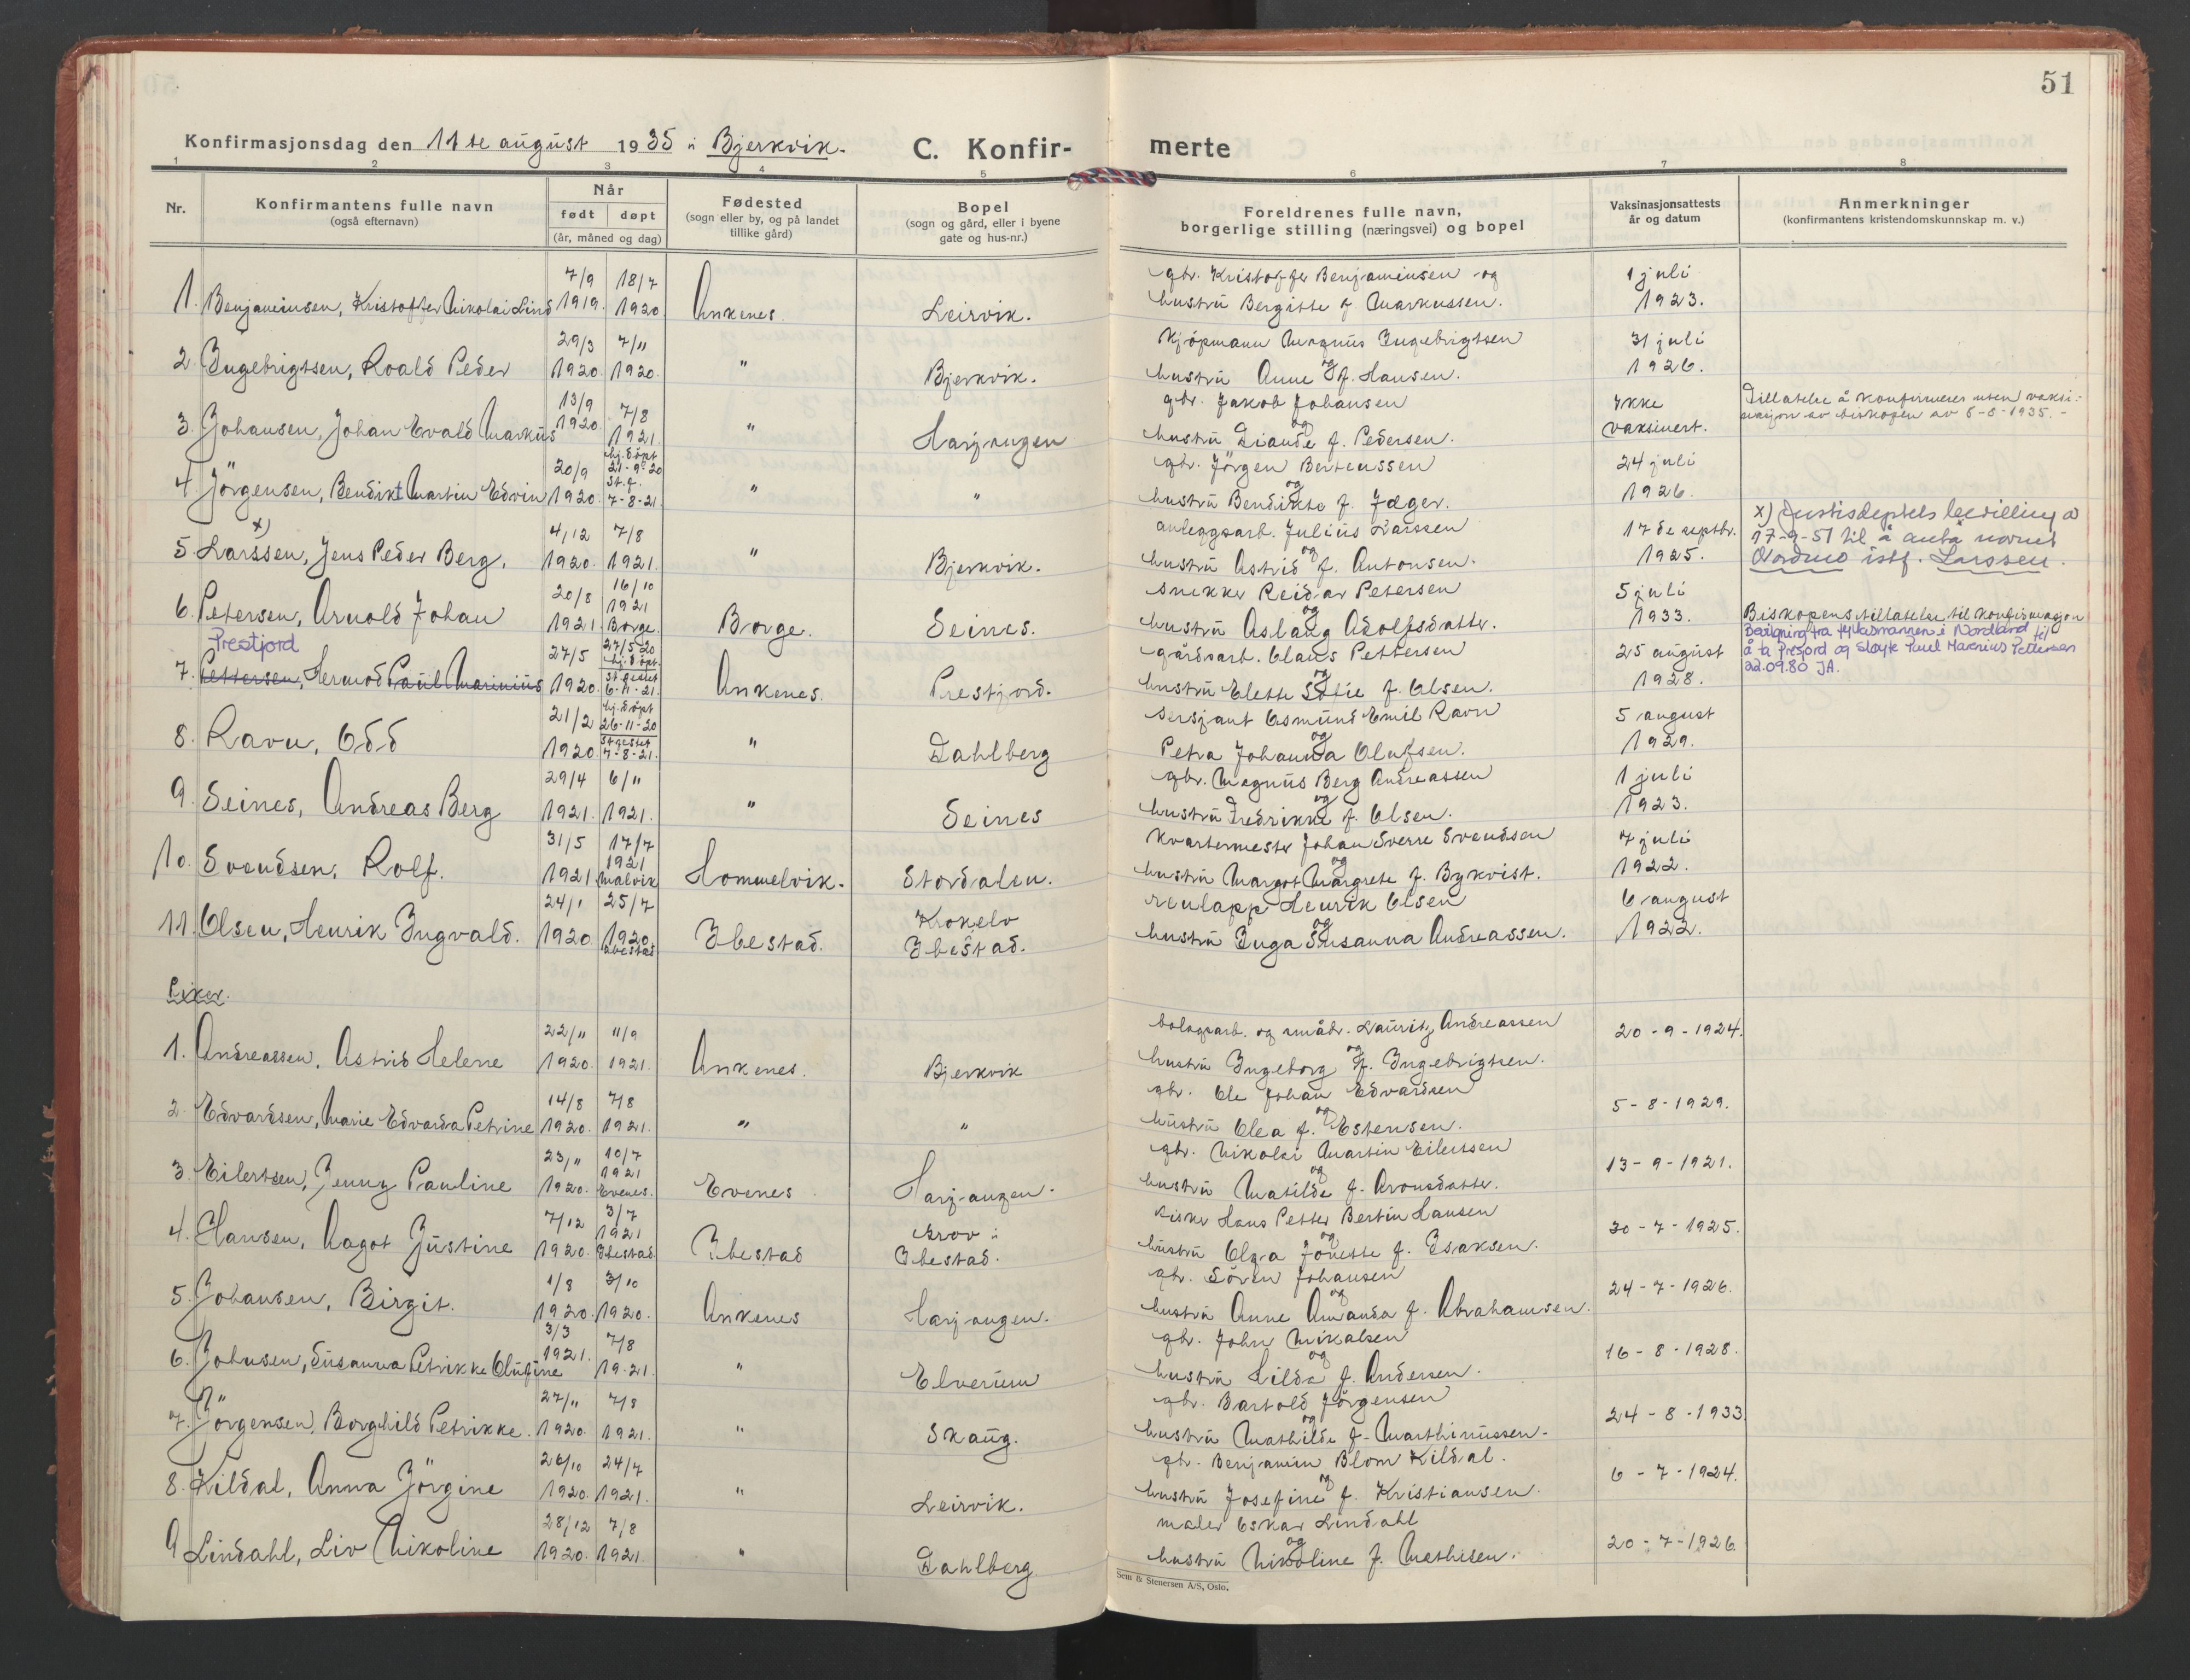 51
Konfirmasjonsdag den 11te august 1935 i Bjerkvik. C. Konfir- merte
1 2 3 4 5 6 7 8
Nr. Konfirmantens fulle navn (også efternavn) Når født døpt (år, måned og dag) Fødested (sogn eller by, og på landet tillike gård) Bopel (sogn og gård, eller i byene gate og hus-nr.) Foreldrenes fulle navn, borgerlige stilling (næringsvei) og bopel Vaksinasjonsattests år og datum Anmerkninger (konfirmantens kristendomskunnskap m. v.)
7/9 18/7 gbr. Kristoffer Benjaminsen og 1 juli
1. Benjaminsen, Kristoffer Nikolai Lind 1919. 1920 Ankenes. Leirvik. hustru Bergitte f Markussen. 1923.
29/3 7/11 Kjöpmann Magnus Ingebrigtsen 31 juli
2 Ingebrigtsen, Roald Peder 1920. 1920. " Bjerkvik. hustru Anne og f. Hansen. 1926.
13/9 7/8 gbr. Jakob Johansen Ikke Tillatelse å konfirmeres uten vaksi-
3. Johansen, Johan Evald Markus 1920 1921. " Harjangen og hustru f. Pedersen. vaksinert. nasjon av biskopen av 6-8-1935. -
20/9 hj.döpt 21-9-20 gbr. Jörgen Berteussen 24 juli
4 Jörgensen, Bendikt Martin Edvin 1920. St.f. 7-8-21. " " og hustru Bendikte f. Jæger. 1926.
x) 4/12 7/8 anleggsarb. Julius Larssen 17de septbr. x) Justisdeptets bevilling av
5. Larssen, Jens Peder Berg. 1920. 1921. " Bjerkvik. og hustru Astrid f. Antonsen. 1925. 17-9-51 til å anta navnet
Nordmo istf. Larssen.
20/8 16/10 snekker Reidar Petersen 5 juli
6. Petersen, Arnold Johan 1921 1921 Borge. Borge. Seines. og hustru Aslaug Adolfsdatter. 1933. Biskopens tillatelse til konfirmasjon
Prestjord 27/5 27/5 20 hj.döpt. gårdsarb. Claus Pettersen 25 august Bevilgning fra fylkesmannen i Nordland til
7. Pettersen, Hermod Paul Marinius 1920. St festet 6-11-21. Ankenes. Prestjord. og hustru Elette Sofie f. Olsen. 1928. å ta Presjord og sløyfe Paul Marinius Pettersen
22.09.80 JA.
21/2 hj.döpt 26-11-20 Sersjant Osmund Emil Ravn 5 august
8. Ravn, Odd 1920. St festet 7-8-21. " Dahlberg og Petra Johanna Olufsen. 1929.
29/4 6/11 gbr. Magnus Berg Andreassen 1 juli
9. Seines, Andreas Berg 1921. 1921. " Seines og hustru Fredrikke f. Olsen. 1923.
31/5 17/7 Kvartermester Johan Sverre Svendsen 7 juli
10. Svendsen, Rolf. 1921 1921 Malvik Hommelvik. Stordalen. og hustru Margot Margrete f. Bykvist. 1922.
24/1 25/7 Krokelv renlapp Henrik Olsen 6 august
11. Olsen, Henrik Ingvald. 1920 1920 Ibestad Ibestad. Ibestad. og hustru Inga Susanna Andreassen. 1922.
Piker.
22/11 11/9 bolagsarb. og småbr. Lauritz Andreassen 20-9-1924.
1. Andreassen, Astrid Helene 1920. 1921. Ankenes. Bjerkvik og hustru Ingeborg f. Ingebrigtsen.
14/8 7/8 gbr. Ole Johan Edvardsen 5-8-1929.
2. Edvardsen, Marie Edvarda Petrine 1920. 1921. " " og hustru Olea f. Estensen.
23/11 10/7 gbr. Nikolai Martin Eilertsen 13-9-1921.
3. Eilertsen, Jenny Pauline 1920. 1921 Evenes. Evenes Harjangen. og hustru Matilde f. Aronsdatter.
7/12 3/7 Grov i fisker Hans Petter Bertin Hansen 30-7-1925.
4. Hansen, Aagot Justine 1920. 1921 Ibestad Ibestad Ibestad. og hustru Olga Jonette f. Isaksen.
1/8 3/10 gbr. Sören Johansen 24-7-1926.
5. Johansen, Birgit. 1920. 1920. Ankenes Harjangen. og hustru Anne Amanda f. Abrahamsen.
3/3 7/8 gbr. John Mikalsen 16-8-1928.
6. Johnsen, Susanna Petrikke Olufine 1921. 1921. " Elverum og hustru Hilda f. Andersen.
27/11 7/8 gbr. Bartold Jörgensen 24-8-1933.
7. Jörgensen, Borghild Petrikke. 1920. 1921. " Skaug. og hustru Mathilde f. Marthinussen.
26/10 24/7 gbr. Benjamin Blom Kildal. 6-7-1924.
8. Kildal, Anna Jörgine 1920. 1921. " Leirvik. og hustru Josefine f. Kristiansen.
28/12 7/8 maler Oskar Lindahl 20-7-1926.
9 Lindahl, Liv Nikoline 1920. 1921. " Dahlberg. og hustru Nikoline f. Mathisen.
Sem & Stenersen A/S, Oslo.